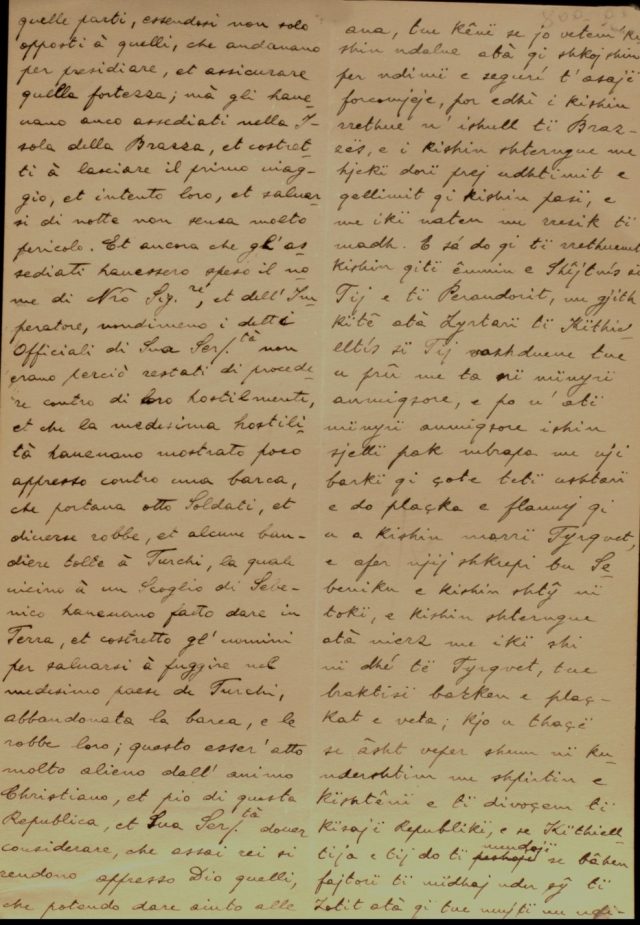 quelle parti, essendosi non solo
opposti à quelli, che andavano
per presidiare, et assicurare
quella fortezza; mà gli have-
vano anco assediati nella I-
sola della Brazza, et costret-
ti à lasciare il primo viag-
gio, et intento loro, et salvar-
si di notte non senza molto
pericolo. Et ancora che gl'as-
sediati havessero speso il no
me di Nrõ Sig.re, et dell'Im-
peratore, nondimeno i detti
Officiali di Sua Ser.tà non
erano perciò restati di procede-
re contro di loro hostilmente,
et che la medesima hostili-
tà havevano mostrato poco
appresso contro una barca,
che portava otto Soldati, et
diverse robbe, et alcune ban-
diere tolte à Turchi, la quale
vicino à un Scoglio di Sebe-
nico havevano fatto dare in
Terra, et costretto gl'uomini
per salvarsi à fuggire nel
medesimo paese de Turchi,
abbandonata la barca, e le
robbe loro; questo esser'atto
molto alieno dall'animo
Christiano, et pio di questa
Republica, et Sua Ser.tà dover
considerare, che assai rei si
rendono appresso Dio quelli,
che potendo dare aiuto alle
ana, tue kênë se jo vetem
shin ndalue atà qi shkojshin
per ndimë e segurí t'asajë
forcmjeje, por edhè i kishin
rrethue n'ishull të Braz-
zës, e i kishin shterngue me
hjekë dorë prej udhtimit e
qellimit qi kishin pasë, e
me ikë naten me rrezik të
madh. E sà do qi të rrethuemt
kishin qitë êmnin e Shêjtnís së
Tij e të Perandorit, me gjith
këtê atà Zyrtarë të Këthiell-
eltís së Tij vashdueve tue
u prû me ta në mënyrë
anmiqsore, e po n'atë
mënyrë anmiqsore ishin
sjellë pak mbrapa me nji
barkë qi çote tetë ushtarë
e do plaçka e flamuj qi
u a kishin marrë Tyrqvet,
e afer njij shkrepi tu Se-
beniku e kishin shtŷ në
tokë, e kishin shterngue
atà nierz me ikë shi
në dhé të Tyrqvet, tue
braktisë barken e plaç-
kat e veta; kjo u thaçë
se âsht veper shum në ku-
ndershtim me shpirtin e
kishtênë e të divoçem të
kësajë Republikë, e se Këthiell-
tija e tij do të mendojë se bâhen
fajtorë të mëdhaj nder sŷ të
Zotit atà qi tue mujtë me ndi-